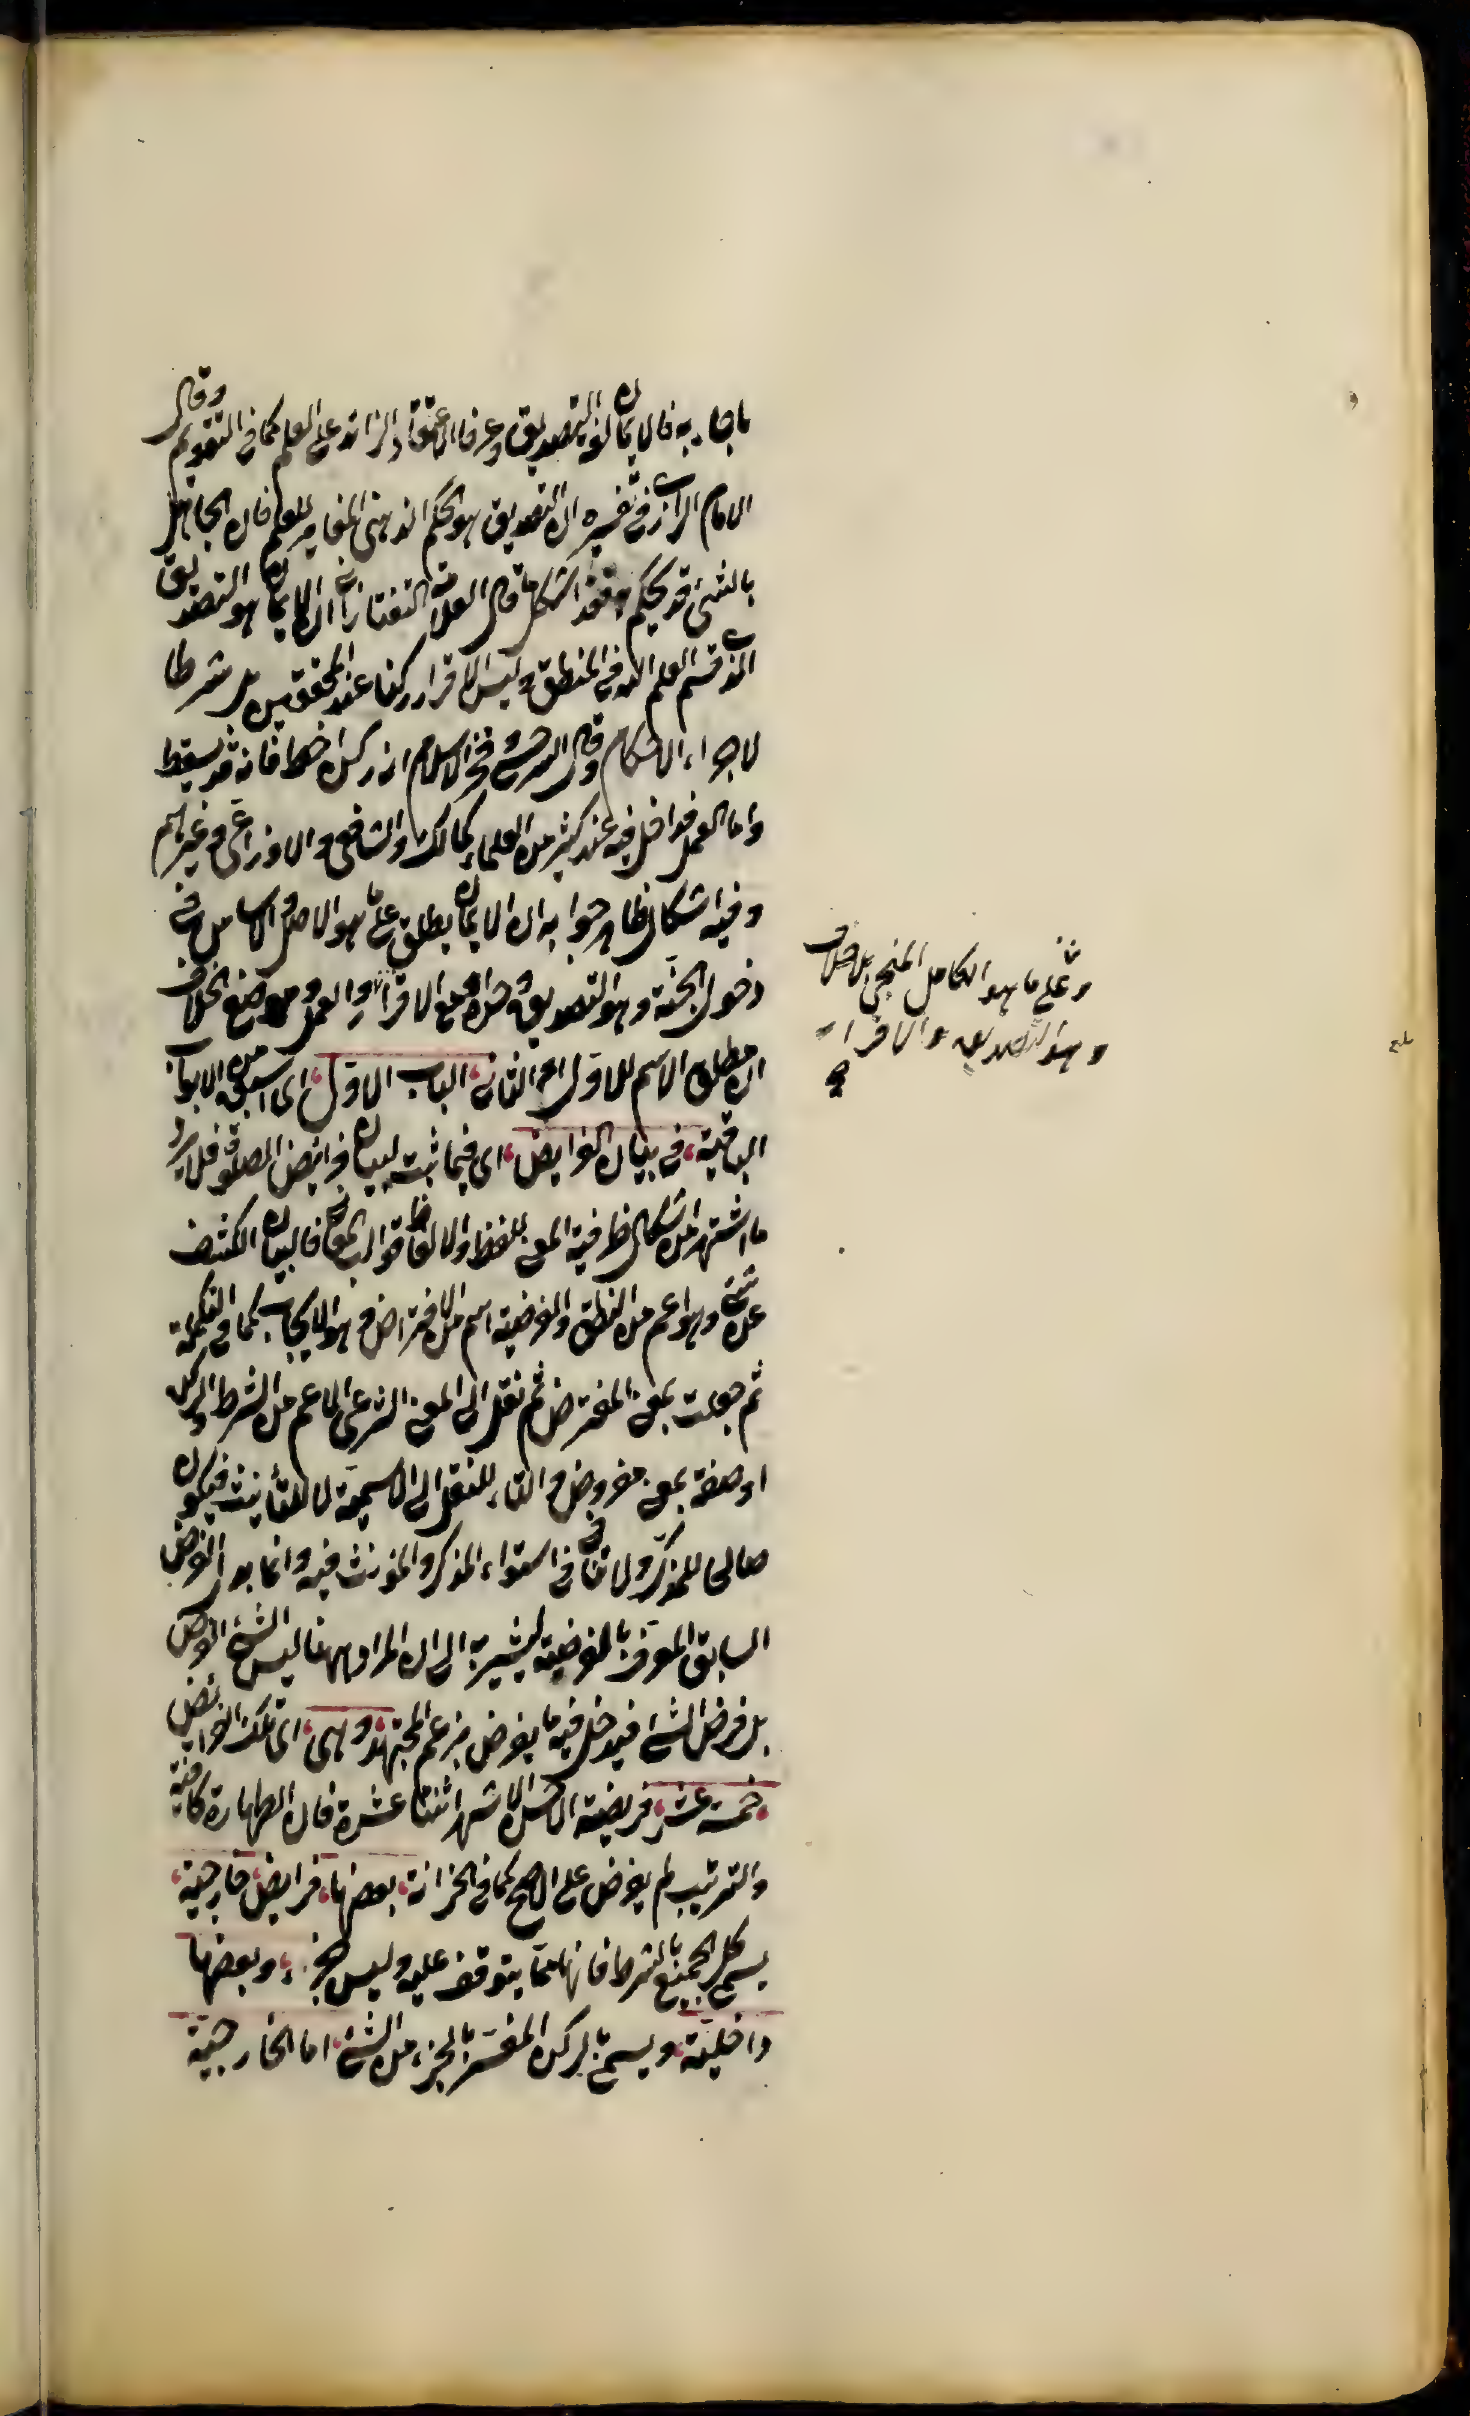 ما جاء به فالايمان لغة التصديق وعرفا الاعتقاد الزائد على العلم كما في التقويم وقال
الامام الرازي في تفسيره ان التصديق هو الحكم الذهني المغاير للعلم فان الجاهل
بالشيء قد يحكم به فقد اشكل ما قال العلامة التفتازاني ان الايمان هو التصديق
الذي قسم العلم اليه في المنطق وليس الاقرار ركنا عند المحققين بل شرطا
لاجراء الاحكام وقال السرخسي وفخر الاسلام انه ركن احط فانه قد يسقط
واما العمل فداخل فيه عند كثير من العلماء كمالك والشافعي والاوزاعي وغيرهم
وفيه اشكال ظاهر جوابه ان الايمان يطلق على ما هو الاصل والاساس في
دخول الجنة وهو التصديق وحده او مع الاقرار والعمل وموضع الخلاف
ان مطلق الاسم للاول ام الثاني الباب الاول اي اسبق من الابواب
الباقية في بيان الفرايض اي فيما ثبت لبيان فرايض الصلوة فلا يرد
ما اشتهر من اشكال ظرفية المعنى للفظ والالفاظ قوالب المعاني فالبيان الكشف
عن شيء وهو اعم من النطق والفرضية اسم من الافتراض وهو الايجاب كما في التكملة
ثم جعلت بمعنى المفترض ثم نقل الى المعنى الشرعي الاعم من الشرط والركن
او صفة بمعنى مفروض والتاء للنقل الى الاسمية لا للتأنيث فيكون
صالحا للمذكر ولا تنافي استواء المذكر والمؤنث فيه وانما بدل الفرض
السابق المعرف بالفرضية ليشير به الى ان المراد ههنا ليس الشيء الفرض
بل فرض الشيء فيدخل فيه ما يفرض بزعم المجتهد وهي اي تلك الفرايض
خمسة عشر فريضة الا ان الاشهر اثنتا عشرة فان الطهارة كافية
والترتيب لم يفرض على الاصح كما في الخزانة بعضها فرايض خارجية
يسمى كل الجميع بالشرط فانها مما يتوقف عليه وليس بجزء وبعضها
داخلية ويسمى بالركن المفسر بالجزء من الشيء اما الخارجية
وعلى ما هو الكامل المنجي بلا خلاف
وهو التصديق والاقرار